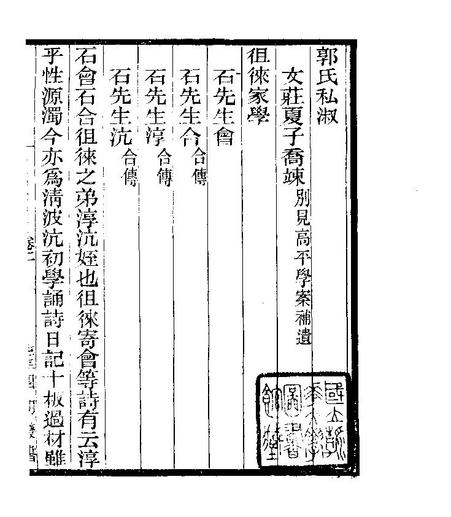 郭氏私淑
文莊夏子喬竦 別見高平學案補遺
徂徠家學
石先生會
石先生合 合傳
石先生淳 合傳
石先生沆 合傳
石會石合徂徠之弟淳沆姪也徂徠寄會等詩有云淳
乎性源濁今亦爲清波沆初學誦詩日記十板過材雖